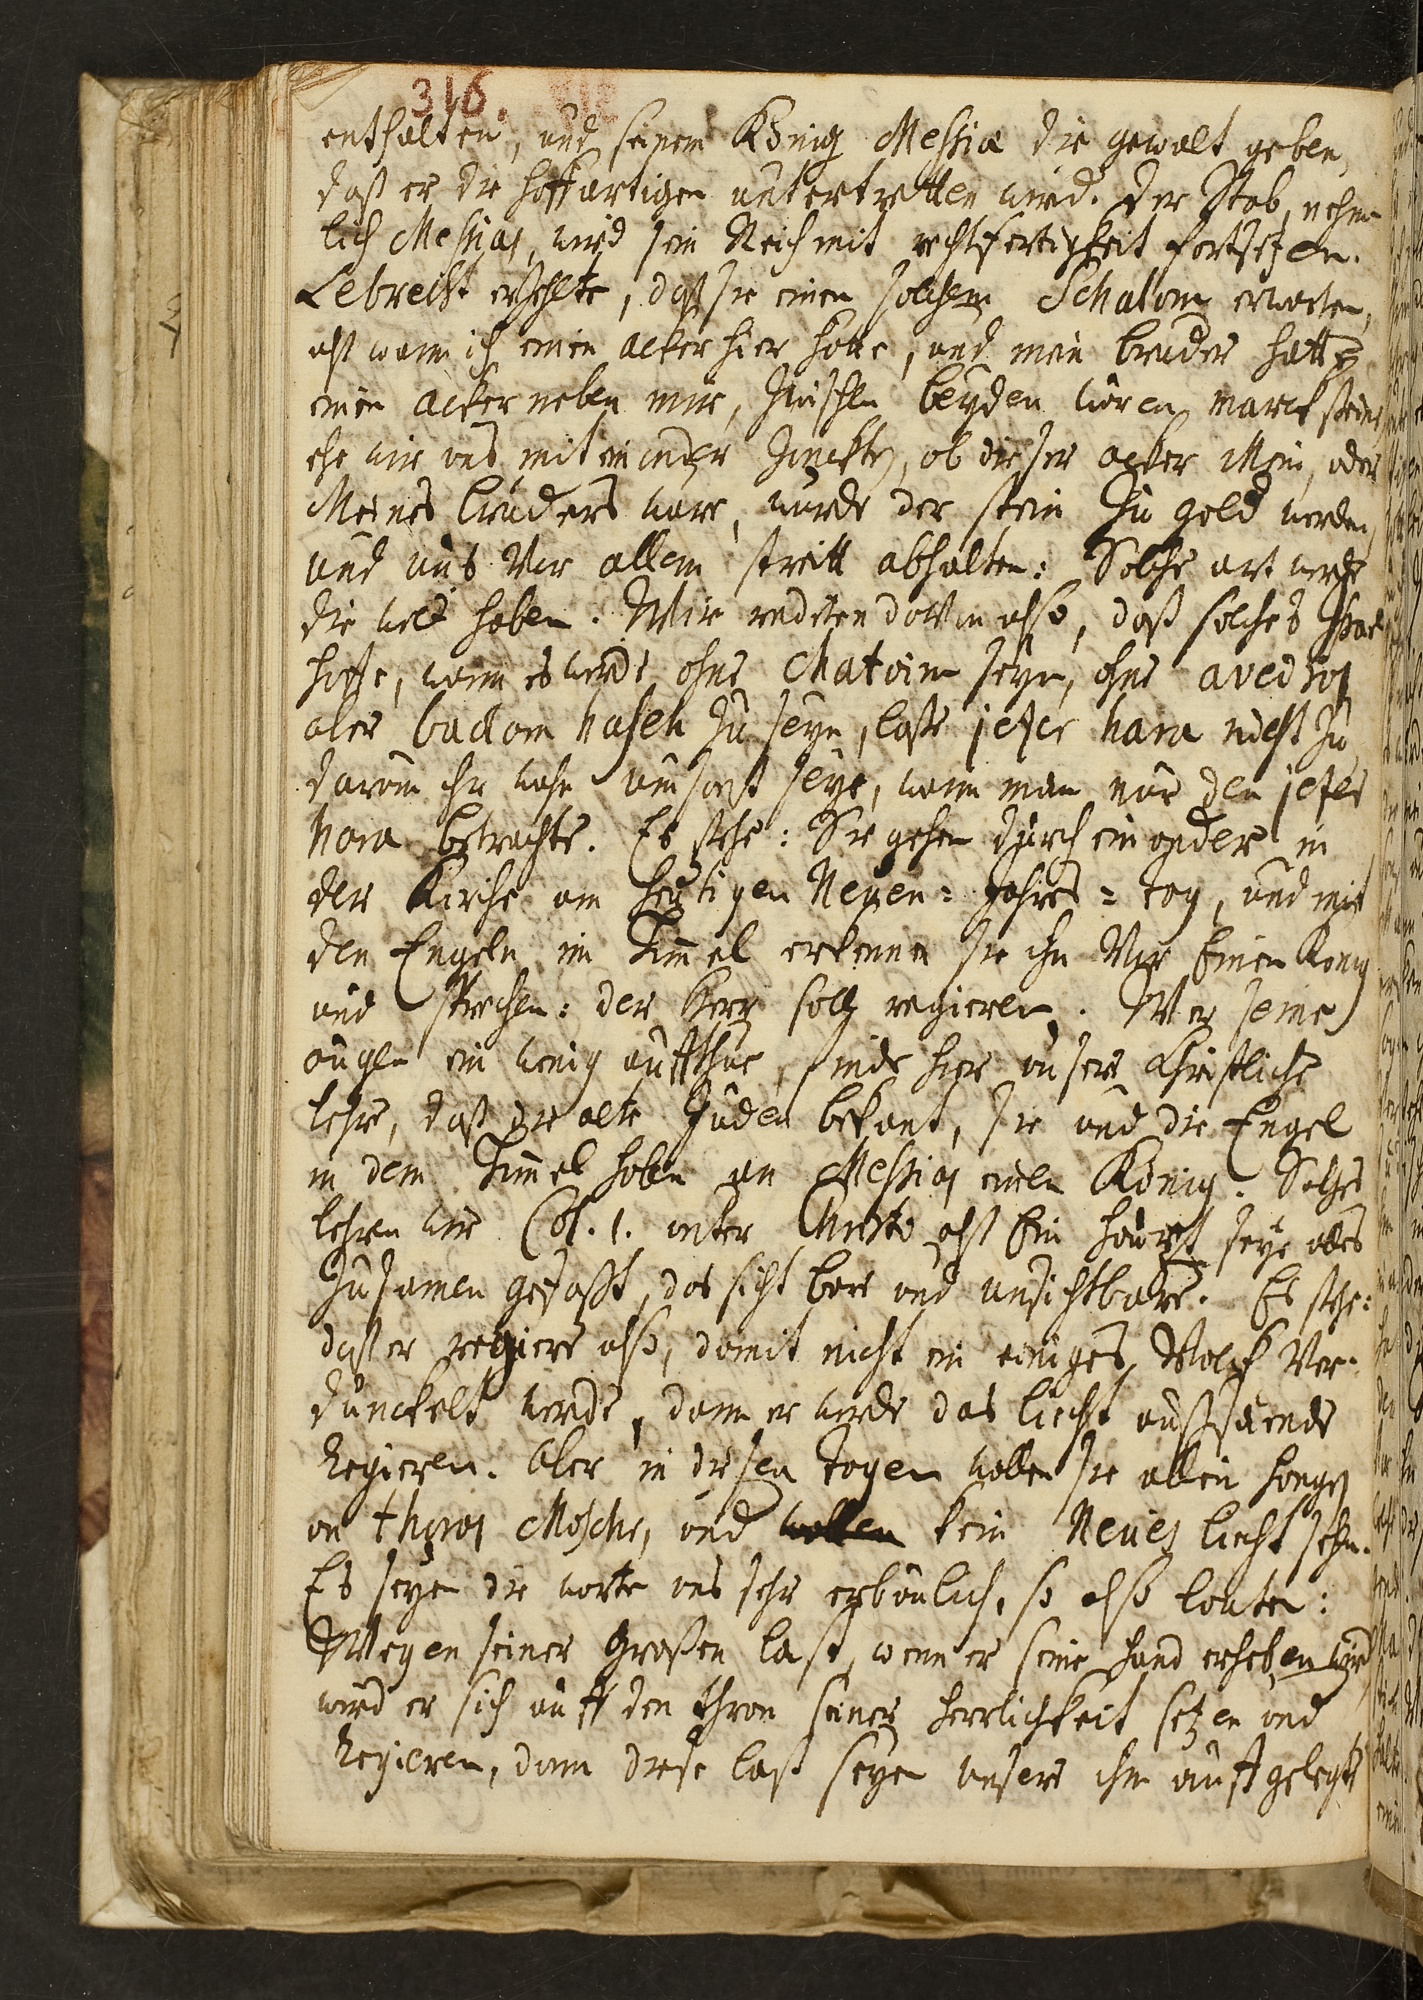 316.
enthalten, und seinem König Messiæ die gewalt geben,
daß er die hoffärtigen untertretten wird. Der Stab, nehm-
lich Messias, wird sein Reich mit rechtfertigkeit fortsetzen.
Lebrecht erzehlte, daß sie einen solchen Schalom erwarten,
alß wann ich einen acker hier hätte, und mein bruder hätte
einen acker neben mir, zwischen beyden wären marckstein,
ehe wir uns mit einander zanckten, ob dieser acker Mein, oder
Meines bruders wäre, würde der stein zu gold werden,
und uns Vor allem streitt abhalten: Solche art werde
die welt haben. Wir redeten davon also, daß solches
hoffe, wann es werde ohne Matoim seyn, ohne
aber bachom haseh zu seyn, lasse jezer hara nicht zu
darum ihr wahn umsonst seye, wann man nur den jezer
hara betrachte. Es stehe: Sie gehen durch einander in
der Kirche am heutigen Neuen=Jahres=tag, und mit
den Engeln im Himel erkennen sie ihn Vor Einen König
und sprechen: der Herr soll regieren. Wer seine
augen ein wenig auffthue, finde hier unsere Christliche
lehre, daß die alte Juden bekant, sie und die Engel
in dem Himel haben an Messias einen König. Solches
lehren wir Col. 1. unter Christo alß Ein haupt seye alles
zusamen gefasst, das sichtbare und unsichtbare. Es stehe:
daß er regiere also, damit nicht ein einiges Volck Ver-
dunckelt werde, dann er werde das liecht außsäende
Regieren. Aber in diesen tagen wollen sie allein hangen
an thoras Mosche, und kein Neues liecht sehen.
Es seyen die worte uns sehr erbäulich, so also lauten:
Wegen seiner Großen last, wenn er seine hand erheben wird
wird er sich auff den thron seiner herrlichkeit setzen und
Regieren, dann diese last seyen unsere ihm auffgelegte